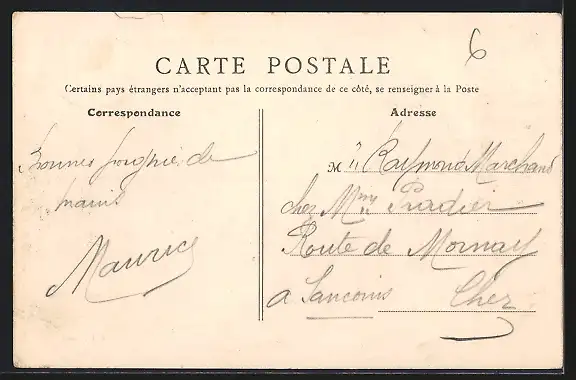 6
CARTE POSTALE
Certains pays étrangers n'acceptant pas la correspondance de ce côté, se renseigner à la Poste
Correspondance
Adresse
Bonnes poignée de
mains
Maurice
M Raymond Marchand
chez Mme Pradier
Route de Mornay
a Sancoins Cher